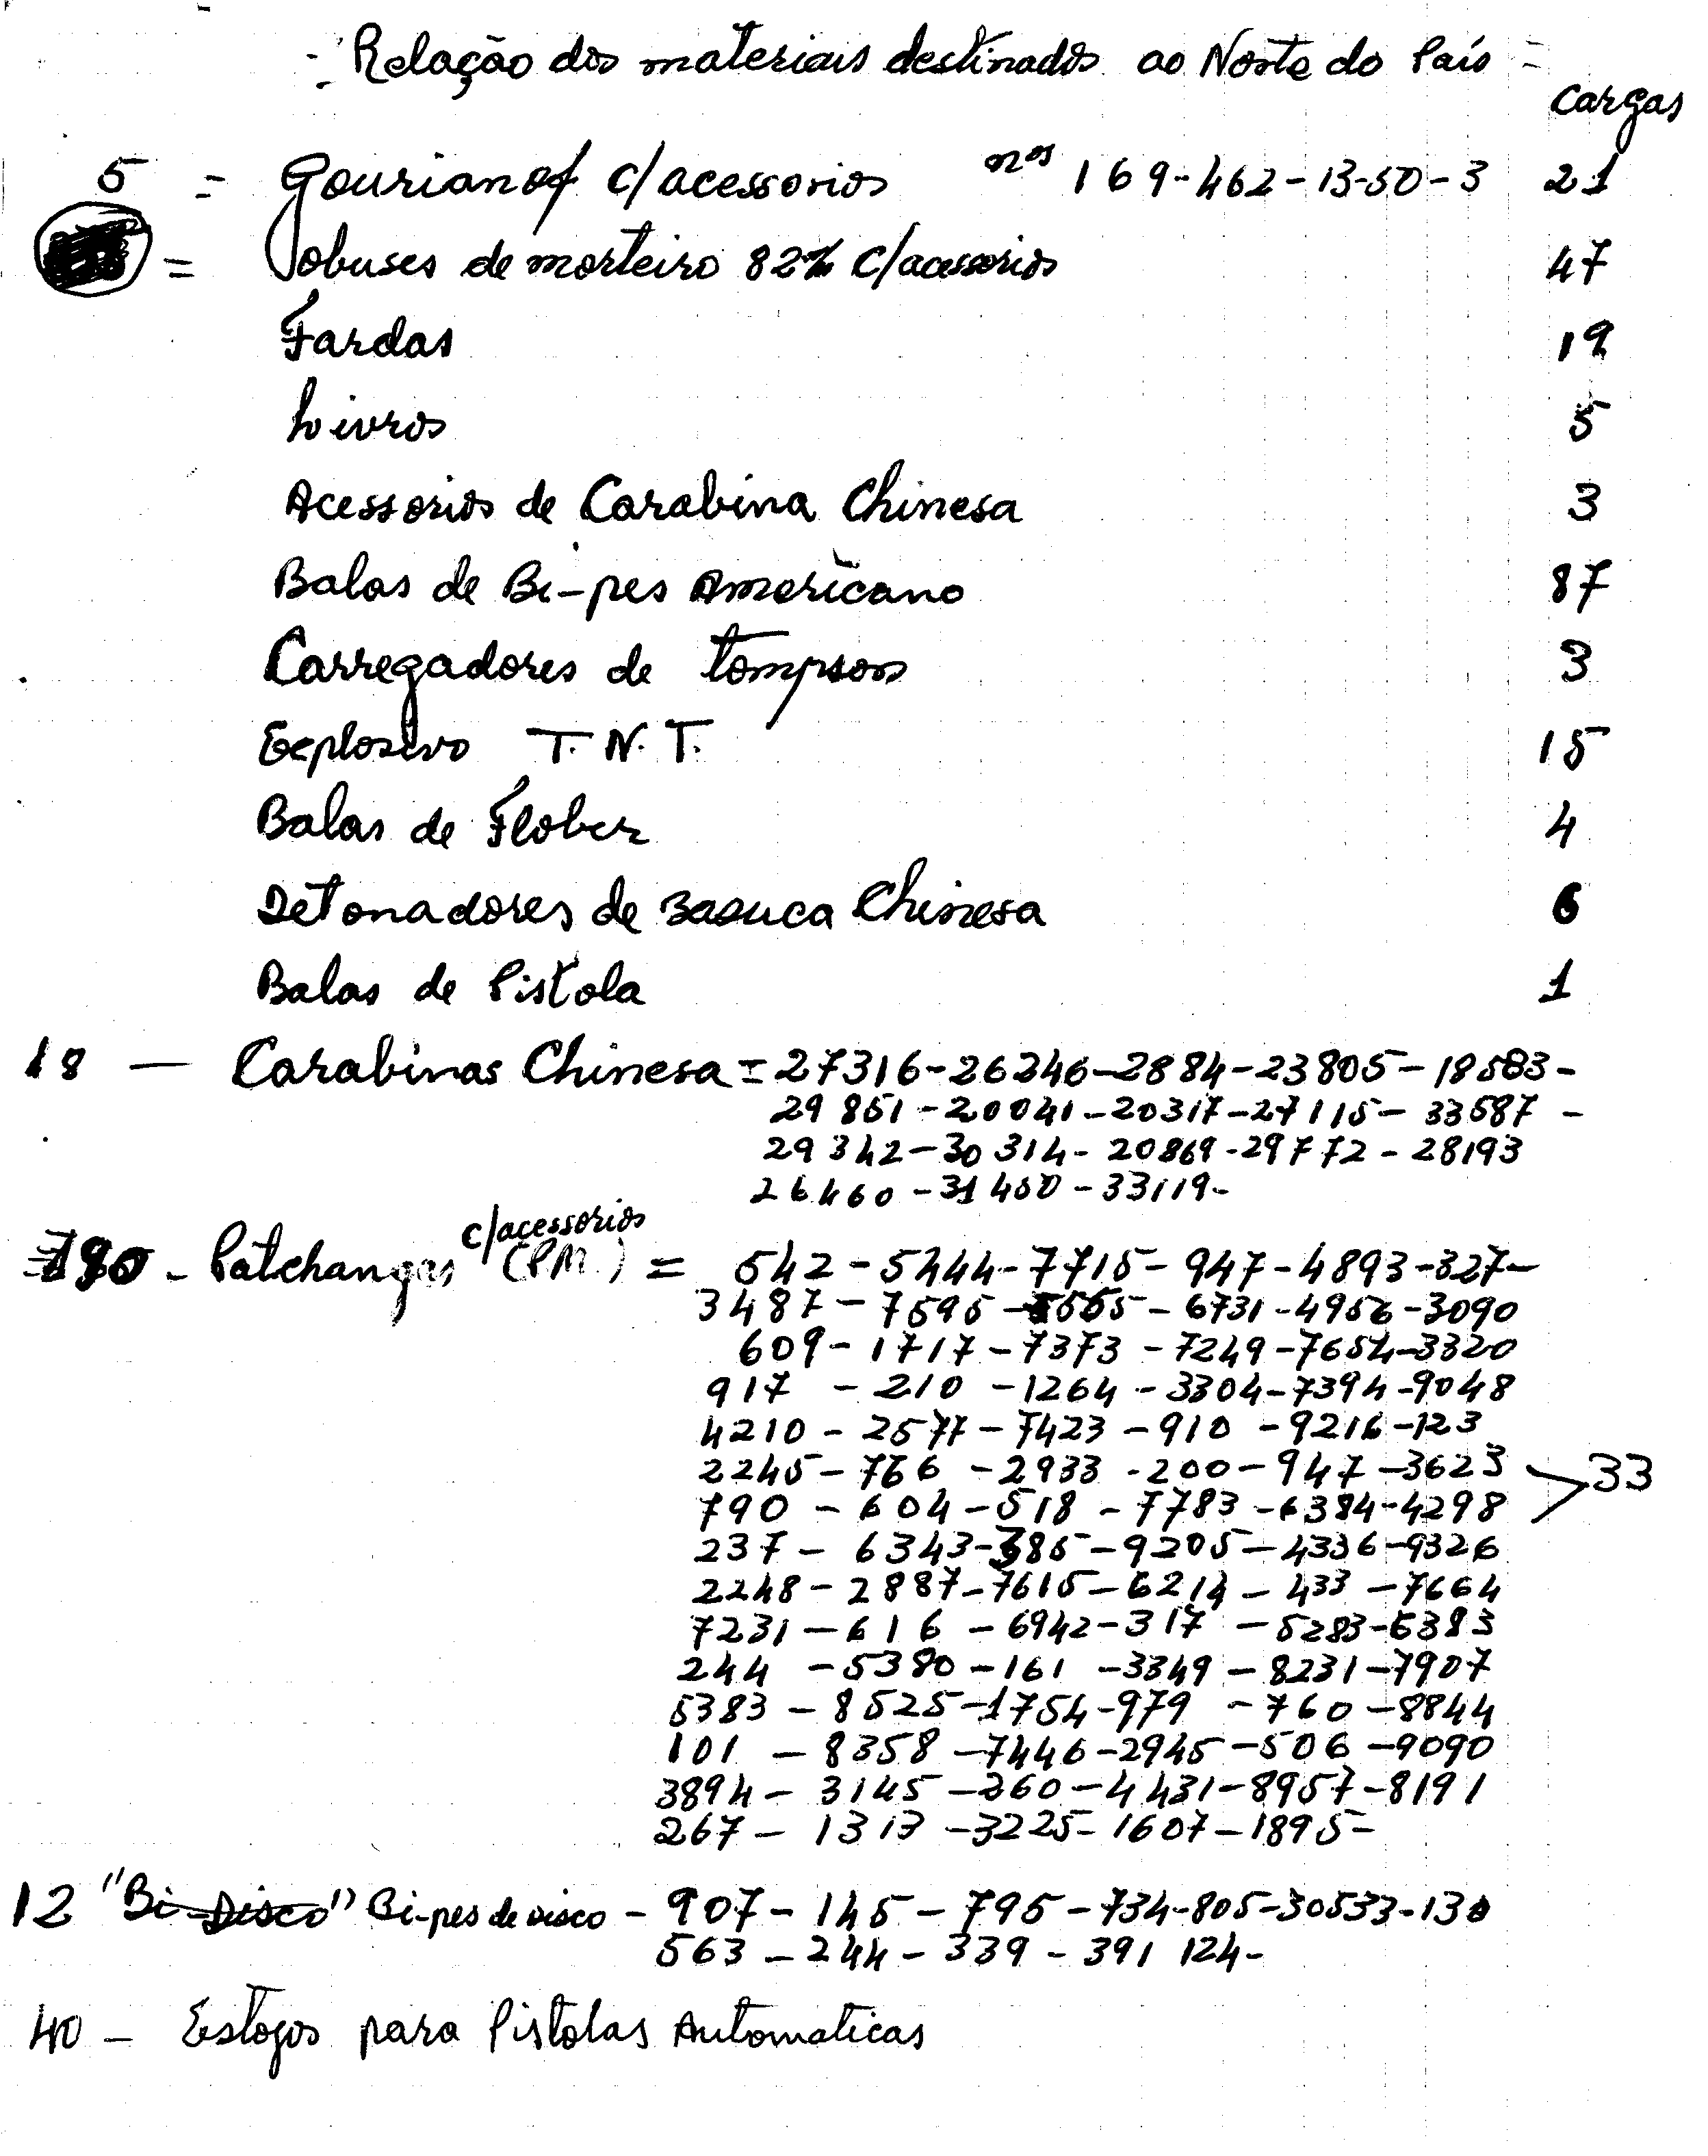 - Relação dos materiais destinados ao Norte do País -
Cargas
5 = Gourianof c/acessorios nos 169-462-13-50-3 21
= Jobuses de morteiro 82% c/acessorios 47
Fardas 19
Livros 5
Acessorios de Carabina Chinesa 3
Balas de Bi-pes Americano 87
Carregadores de Tompson 3
Explosivo T.N.T. 15
Balas de Flober 4
Detonadores de Basuca Chinesa 6
Balas de Pistola 1
18 — Carabinas Chinesa = 27316-26246-2884-23805-18583-
29851-20041-20317-27115-33587-
29342-30314-20869-29772-28193
26460-31450-33119-
c/acessorios
190 - Patchangas (PM) = 542-5444-7715-947-4893-327-
3487-7595-5565-6731-4956-3090
609-1717-7373-7249-7654-3320
917-210-1264-3304-7394-9048
4210-2577-7423-910-9216-123
2245-766-2933-200-947-3623 33
790-604-518-7783-6384-4298
237-6343-385-9205-4336-9326
2248-2887-7615-6214-433-7664
7231-616-6942-317-5283-6383
244-5380-161-3349-8231-7907
5383-8525-1754-979-760-8844
101-8358-7446-2945-506-9090
3894-3145-260-4431-8957-8191
267-1313-3225-1607-1895-
12 "Bi-Disco" Bi-pes de disco - 907-145-795-734-805-30533-130
563-244-339-391 124-
40 - Estojos para Pistolas Automaticas